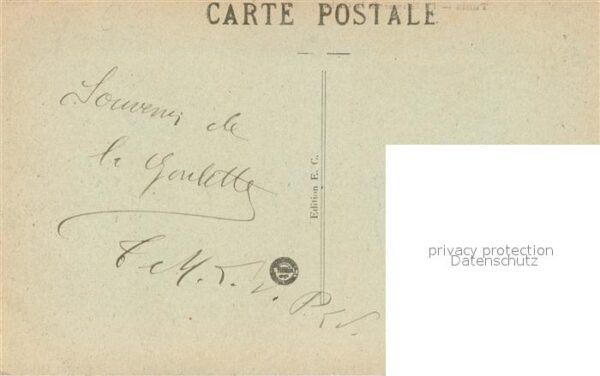 CARTE POSTALE
Souvenir de
la Goulette
Edition E. C.
privacy protection
Datenschutz